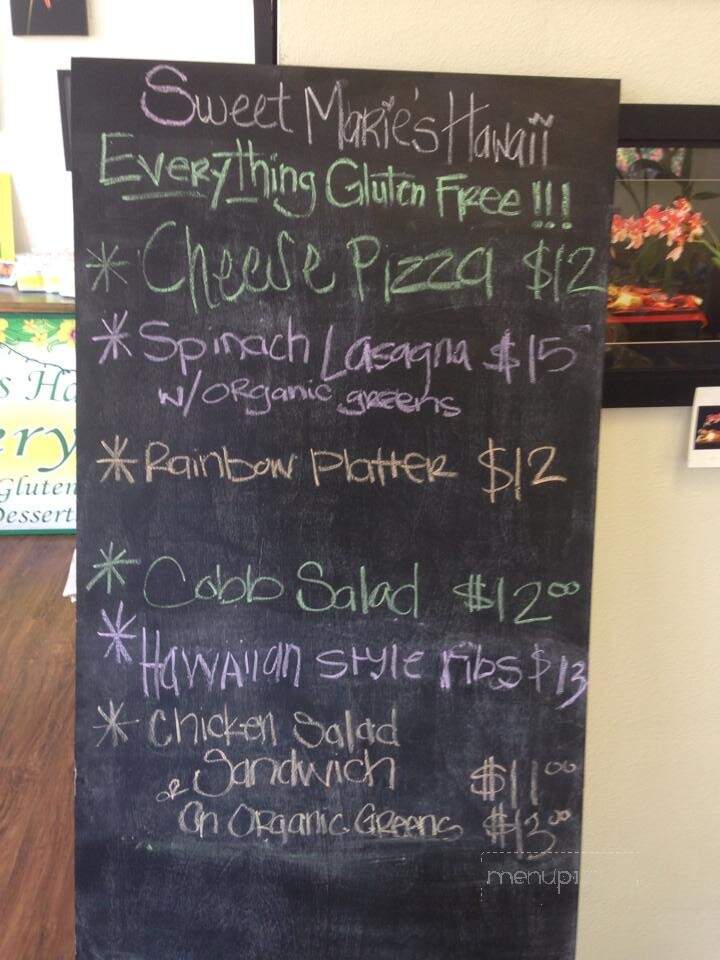 Sweet Marie's Hawaii
Everything Gluten Free!!!
* Cheese Pizza $12
* Spinach Lasagna $15
w/organic greens
* Rainbow Platter $12
* Cobb Salad $12.00
* Hawaiian Style ribs $13
* Chicken Salad
Sandwich $11.00
or On Organic Greens $13.00
s Ha
ery
Gluten
Dessert